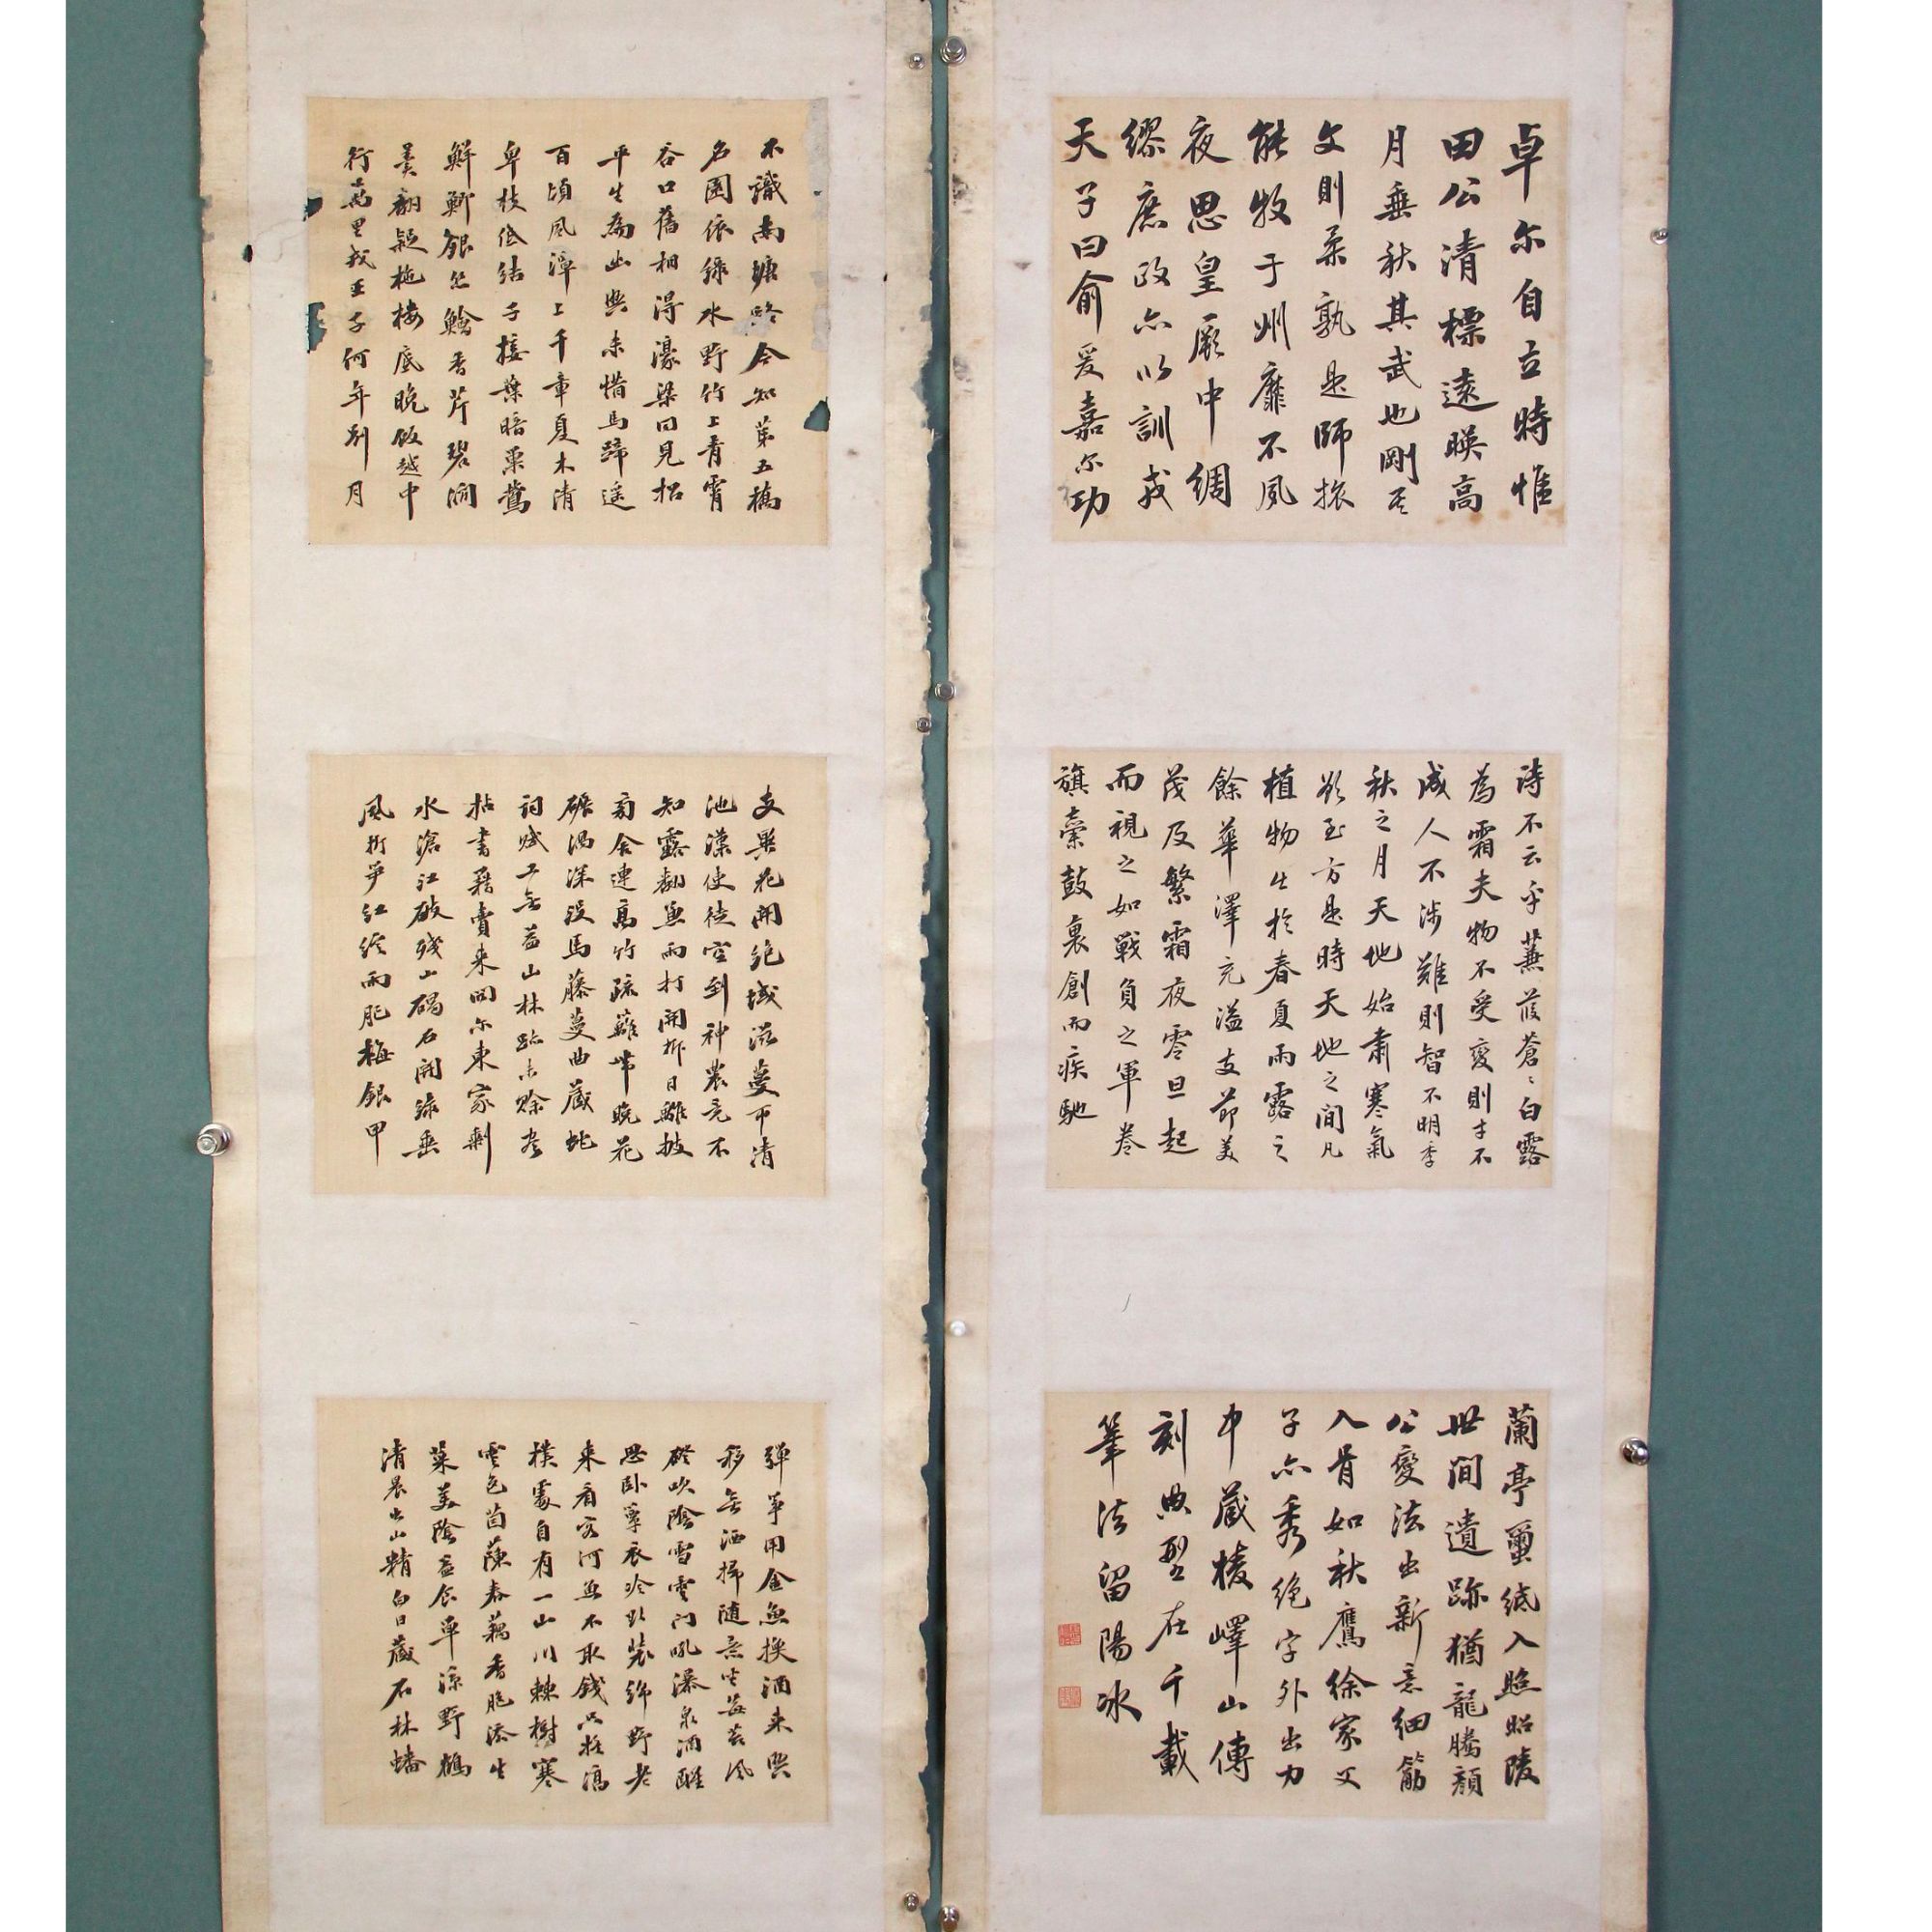 卓尔自立時惟
田公清標遠暎高
月垂秋其武也剛其
文則柔孰是師掁
能牧于州靡不夙
夜思皇厥中綢
繆庶政亦以訓戎
天子曰俞爰嘉尔功
詩不云乎蒹葭蒼〻白露
為霜夫物不受變則才不
成人不涉難則智不明季
秋之月天地始肅寒氣
欲至方是時天地之間凡
植物出於春夏雨露之
餘華澤充溢支節美
茂及繁霜夜零旦起
而視之如戰負之軍卷
旗棄鼓裹創而疾馳
蘭亭璽紙入昭陵
世間遺跡猶龍騰顏
公變法出新意細筋
入骨如秋鷹徐家父
子亦秀絕字外出力
中藏棱嶧山傳
刻典型在千載
筆法留陽冰
不識南塘路今知第五橋
名園依綠水野竹上青霄
谷口舊相得濠梁同見招
平生為幽興未惜馬蹄遙
百頃風潭上千章夏木清
卑枝低結子接葉暗巢鶯
鮮鯽銀絲鱠香芹碧澗
羹翻疑柂樓底晚飯越中
行萬里戎王子何年別月
支異花開絕域滋蔓帀清
池漢使徒空到神農竟不
知露翻兼雨打開拆日離披
旁舍連高竹疏籬帶晚花
碾渦深沒馬藤蔓曲藏虵
詞賦工無益山林跡未賖盡
拈書籍賣來問尔東家剩
水滄江破殘山碣石開綠垂
風折笋紅綻雨肥梅銀甲
彈箏用金魚換酒來興
移無洒掃隨意坐莓苔風
磴吹陰雪雲門吼瀑泉酒醒
思臥簟衣冷欲裝綿野老
來看客河魚不取錢只疑淳
樸處自有一山川棘樹寒
雲色茵蔯春藕香脆添生
菜美陰益食單涼野鶴
清晨出山精白日藏石林蟠